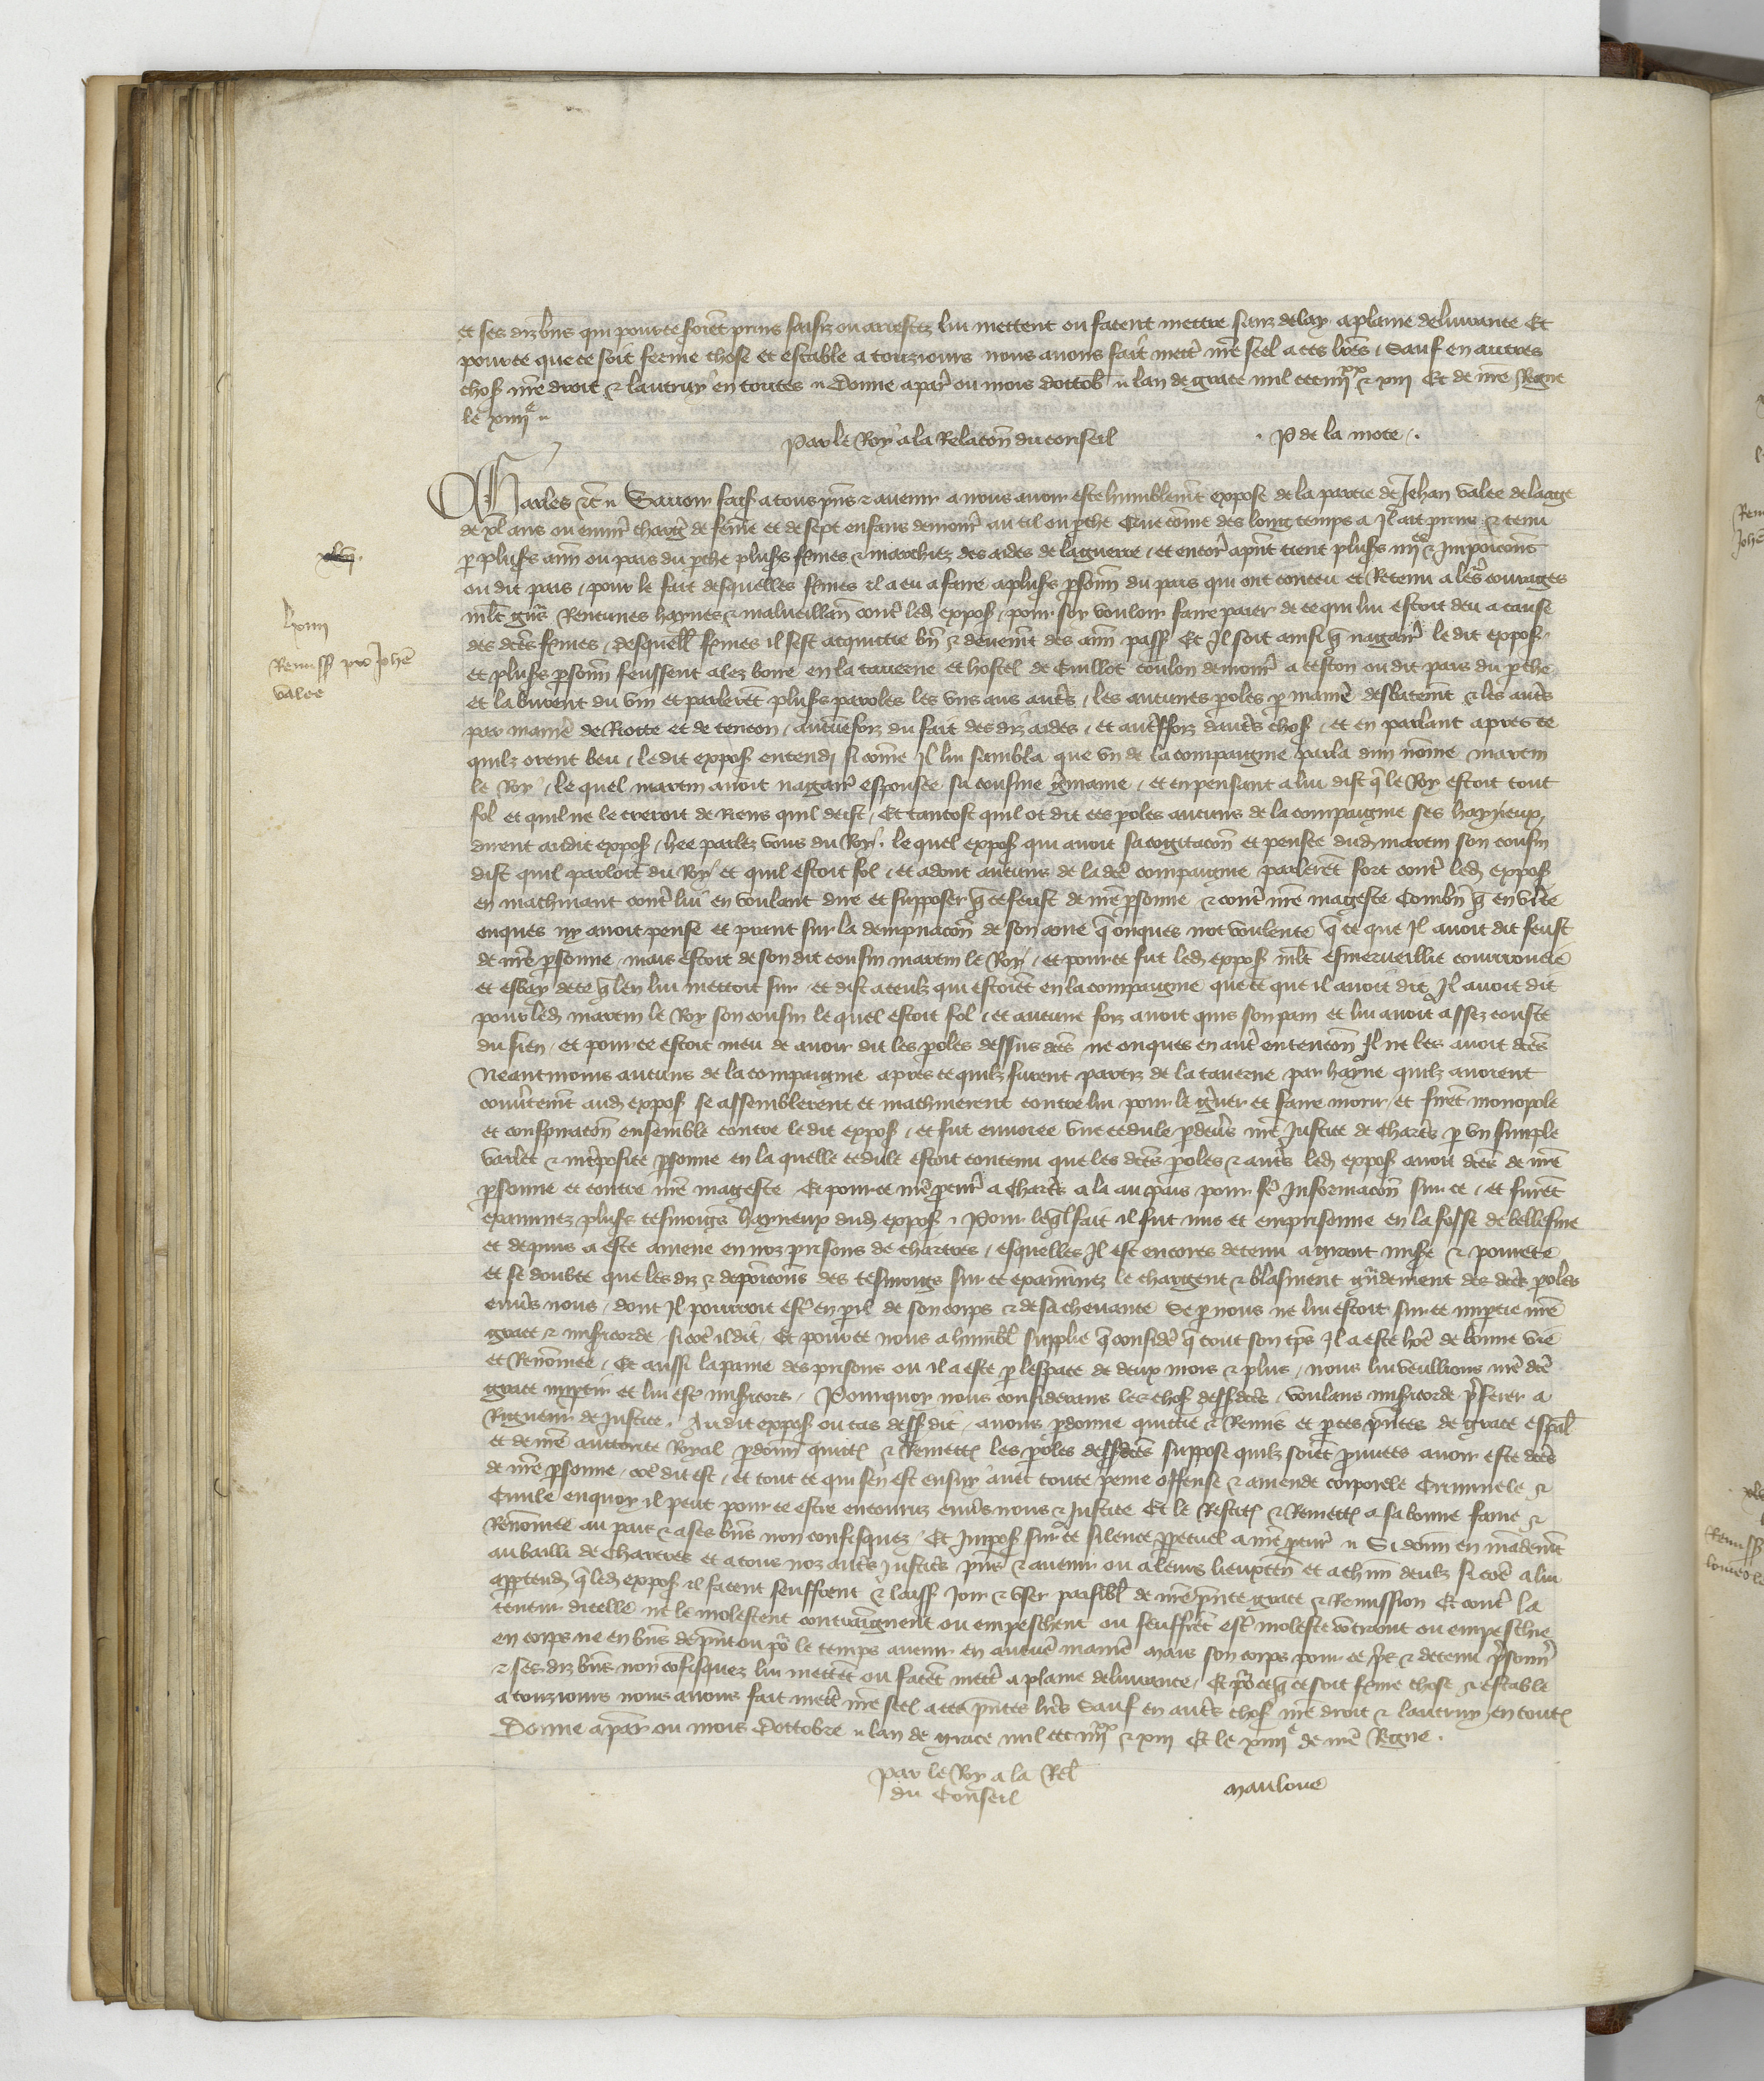 et ses diz biens qui pource soient prins saisiz ou arrestez lui mettent ou facent mettre sanz delay a plaine delivrance Et
pource que ce soit ferme chose et estable a touzjours nous avons fait mettr nrē seel a ces lrēs / Sauf en autres
chos nrē droit & lautruy en toutes Donne a par ou mois doctob lan de grace mil ccc iiijxx & xiij Et de nrē Regne
le xiiije
Par le Roy a la Relacōn du conseil P de la mote
Charles &c Savoir fais a tous pn̄s & avenir a nous avoir este humblemt expose de la partie de Jehan valee de laage
de xl ans ou environ charge de feme et de sept enfans demor au til ou pche Que come des long temps a Il ait prins & tenu
p plus's ann ou pais du pche plus's fmes & marchiez des aides de la guerre / et encor a pn̄t tient plus's &
ou dit pais / pour le fait desquelles fmes il a eu a faire a plus's psonn du pais qui ont conceu et Retenu a leurs courages
mlt̄ Rencunes haynes & malveillan cont led expos / pour soy vouloir faire paier de ce qui lui estoit deu a cause
des dcēs fmes / Desquell fmes il sest acquitte bn̄ & deuemt des ann pass Et Il soit ainsi q̄ nagair le dit expos
et plus's psonn feussent alez boire en la taverne et hostel de Guillot coulon demor a ceston ou dit pais du pche
et la burent du vin et parleret plus's paroles les uns aus autrs / les aucunes poles p manie desbatemt & les autrs
par manie de Riote et de tencon / aucunefoiz du fait des diz aides / et autresfoiz dautrs chos / et en parlant apres ce
quilz orent beu / le dit expos entendi si come Il lui sembla que un de la compaignie parla dun nome martin
le Roy / le quel martin avoit nagair espousee sa cousine gmaine / et en pensant a lui dist q̄ le Roy estoit tout
fol et quil ne le creroit de Riens quil deist / Et tantost quil ot dit ces poles aucuns de la compaignie ses hayneux
dirent audit expos / hee parlez vous du Roy / le quel expos qui avoit sa cogitacōn et pensee dud martin son cousin
dist quil parloit du Roy et quil estoit fol / et adonc aucuns de la dcē compaignie parleret fort cont led expos
en machinant cont lui en voulant dire et supposer q̄ ce feust de nrē psonne & cont nrē mageste Combn̄ q̄ en vite
onques ny avoit pense et prent sur la dempnacōn de son ame q̄ onques not voulente q̄ ce que Il avoit dit feust
de nrē psonne / mais estoit de son dit cousin martin le Roy / et pource fut led expos mlt̄ esmerveillie courroucie
et esbay de ce q̄ len lui mettoit sur et dist a ceulz qui estoiet en la compaignie que ce que il avoit dit Il avoit dit
pour led martin le Roy son cousin le quel estoit fol / et aucune foiz avoit quis son pain et lui avoit assez couste
du sien / et pource estoit meu de avoir dit les poles dessus dcēs ne onques en aut entencōn Il ne les avoit dcēs
Neantmoins aucuns de la compaignie apres ce quilz furent partiz de la taverne par hayne quilz avoient
couvtemt aud expos se assemblerent et machinerent contre lui pour le gver et faire morir / et firet monopole
et conspiracōn ensemble contre le dit expos / et fut envoiee une cedule pdevs nrē Justice de Chartrs p un simple
varlet & intposite psonne en la quelle cedule estoit contenu que les dcēs poles & autrs led expos avoit dcēs de nrē
psonne et contre nrē mageste Et pource nrē pcur a Chartrs a la au pais pour fe Informacōn sur ce / et furet
examinez plus's tesmoigs hayneux dud expos / Pour leql fait il fut mis et emprisonne en la fosse de bellesme
et depuis a este amene en noz prisons de chartres / esquelles Il est encores detenu a grant misē & povrete
et se doubte que les diz & deposicōns des tesmoigs sur ce examinez le chargent & blasment grādement des dcēs poles
envs nous / dont Il pourroit est en pil de son corps & de sa chevance Se p nous ne lui estoit sur ce imptie nrē
grace & misicorde / si coe il dit Et pource nous a humbl supplie q̄ consideē q̄ tout son tps Il a este hoē de bonne vie
et Renomee / Et aussi la paine des prisons ou il a este p lespace de deux mois & plus / nous lui veuillons nrē dcē
grace imptir et lui est misicors / Pourquoy nous considerans les chos dessdcēs / voulans misicorde pferer a
Rigueur de Justice / Au dit expos ou cas dess dit / avons pdonne quittie & Remis et p ces pn̄tes de grace espāl
et de nrē auctorite Royal pdonn quitt & Remett les poles dessdcēs suppose quilz soiet prouvees avoir este dcēs
de nrē psonne / coē dit est / et tout ce qui sen est ensuy avec toute peine offense & amende corporele Criminele &
Civile en quoy il peut pource estre encouruz envs nous & Justice Et le Restit & Remett a sa bonne fame &
Renomee au pais & a ses bn̄s non confisquez / Et Impos sur ce silence ppetuel a nrē pcur Si donn en mādemt
au bailli de Chartres et a tous noz autrs Justicrs pn̄s & avenir ou a leurs lieuxten et a chun deulz si coe a lui
apptend q̄ led expos il facent seuffrent & laiss Joir & user paisibl de nrē pn̄te grace & Remission Et cont la
teneur dicelle ne le molestent contraignent ou empeschent ou seuffret est moleste cōtraint ou empeschie
en corps ne en bn̄s de pn̄t ou po le temps avenir en aucue manie Mais son corps pour ce pris & detenu prisonn
& ses diz bn̄s non cōfisquez lui mettet ou facet mett a plaine delivrance / Et po ce q̄ ce soit fme chose & estable
a touzjours nous avons fait mett nrē seel a ces pn̄tes lrēs Sauf en autrs chos nrē droit & lautruy en tout
Donne a par ou mois doctobre lan de grace mil ccc iiijxx & xiij Et le xiiije de nrē Regne
Par le Roy a la Rel
du Conseil Mauloue
lxiiij
Remiss pro Johē
valee
Remiss